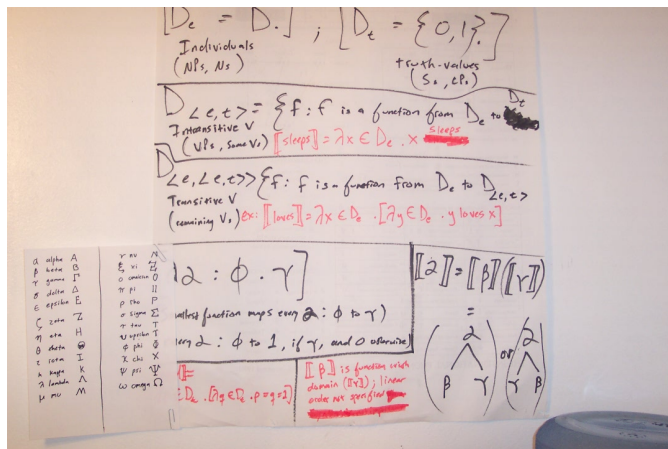 [D_e = D.] ; [D_t = {0,1}.]
Individuals
(NPs, Ns)
truth-values
(Ss, CPs)
D_<e,t> = {f: f is a function from D_e to D_t
Intransitive V
(VPs, some Vs)
[[sleeps]] = λx ∈ D_e . x sleeps
D_<e,<e,t>> {f: f is a function from D_e to D_<e,t>
Transitive V
(remaining Vs)
ex: [[loves]] = λx ∈ D_e . [λy ∈ D_e . y loves x]
α alpha A
β beta B
γ gamma Γ
δ delta Δ
ε epsilon E
ζ zeta Z
η eta H
θ theta Θ
ι iota I
κ kappa K
λ lambda Λ
μ mu M
ν nu N
ξ xi Ξ
ο omicron O
π pi Π
ρ rho P
σ sigma Σ
τ tau T
υ upsilon
φ phi Φ
χ chi X
ψ psi Ψ
ω omega Ω
λα : φ . γ]
smallest function maps every α : φ to γ)
every α : φ to 1, if γ, and 0 otherwise)
]]=
D_e . [λy ∈ D_e .
[[β]] is function with
domain ([[γ]]) ; linear
order not specified
[[α]] = [[β]]([[γ]])
=
α
β γ
or
α
γ β